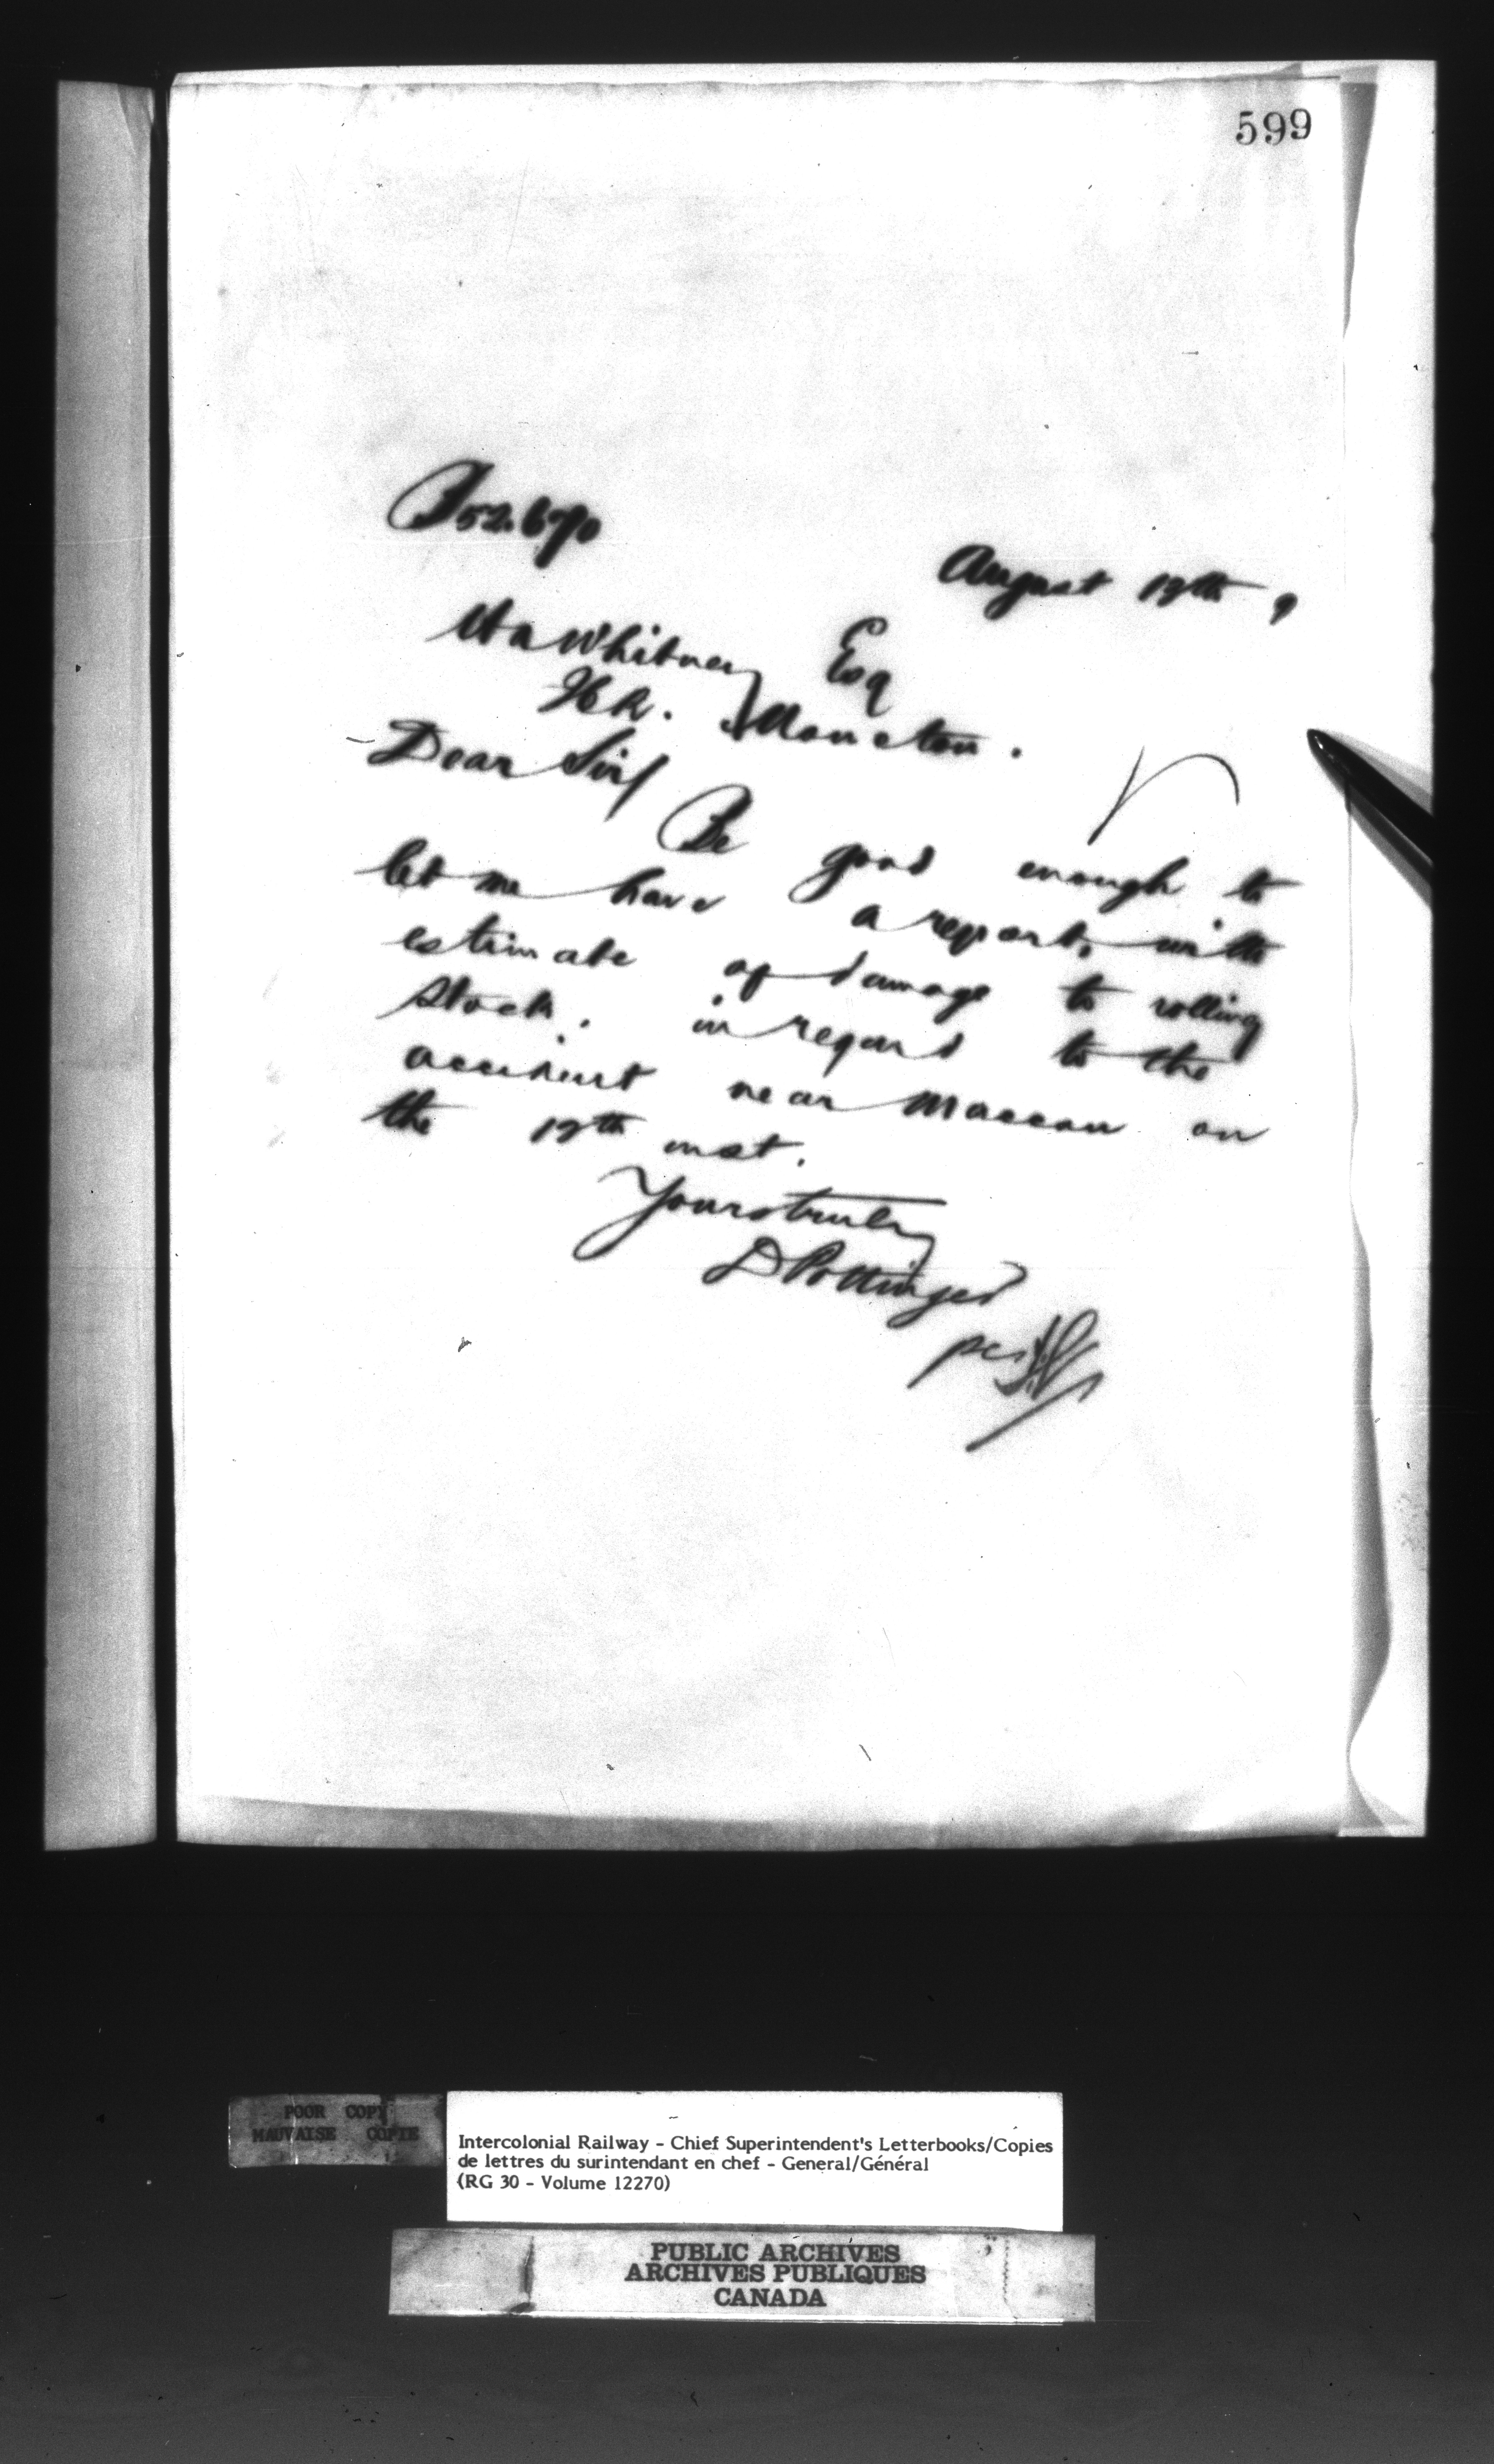 599
B 52.670
August 19th, 9
H A Whitney Esq
Moncton.
Dear Sir/
Be good enough to
let me have a report, with
estimate of damage to rolling
stock, in regard to the
accident near Maccan on
the 19th inst.
Yours truly
D Pottinger
per
POOR COPY
MAUVAISE COPIE
Intercolonial Railway - Chief Superintendent's Letterbooks/Copies
de lettres du surintendant en chef - General/Général
(RG 30 - Volume 12270)
PUBLIC ARCHIVES
ARCHIVES PUBLIQUES
CANADA